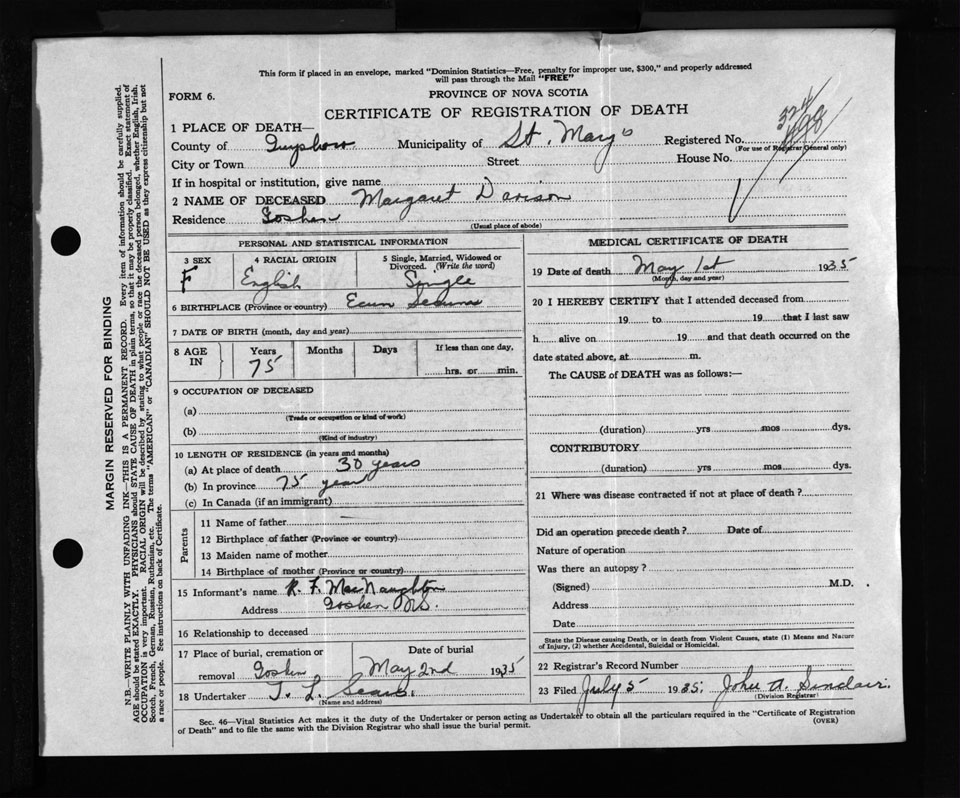 This form if placed in an envelope, marked "Dominion Statistics—Free, penalty for improper use, $300," and properly addressed
will pass through the Mail "FREE"
FORM 6.
PROVINCE OF NOVA SCOTIA
CERTIFICATE OF REGISTRATION OF DEATH
324
1 PLACE OF DEATH—
County of Guysboro Municipality of St. Mary's Registered No.
(For use of Registrar General only)
City or Town Street House No.
If in hospital or institution, give name
2 NAME OF DECEASED Margaret Davison
Residence Goshen
(Usual place of abode)
PERSONAL AND STATISTICAL INFORMATION
3 SEX 4 RACIAL ORIGIN 5 Single, Married, Widowed or
Divorced. (Write the word)
F English Single
6 BIRTHPLACE (Province or country) Ecum Secum
7 DATE OF BIRTH (month, day and year)
8 AGE IN Years Months Days If less than one day,
75 hrs. or min.
9 OCCUPATION OF DECEASED
(a)
(Trade or occupation or kind of work)
(b)
(Kind of industry)
10 LENGTH OF RESIDENCE (in years and months)
(a) At place of death 30 years
(b) In province 75 years
(c) In Canada (if an immigrant)
Parents
11 Name of father
12 Birthplace of father (Province or country)
13 Maiden name of mother
14 Birthplace of mother (Province or country)
15 Informant's name R. F. MacNaughton
Address Goshen N.S.
16 Relationship to deceased
17 Place of burial, cremation or Date of burial
removal Goshen May 2nd 1935
18 Undertaker T. L. Sears.
(Name and address)
MEDICAL CERTIFICATE OF DEATH
19 Date of death May 1st 1935
(Month, day and year)
20 I HEREBY CERTIFY that I attended deceased from
19 to 19 that I last saw
h alive on 19 and that death occurred on the
date stated above, at m.
The CAUSE of DEATH was as follows:—
(duration) yrs mos dys.
CONTRIBUTORY
(duration) yrs mos dys.
21 Where was disease contracted if not at place of death?
Did an operation precede death? Date of
Nature of operation
Was there an autopsy?
(Signed) M.D.
Address
Date
State the Disease causing Death, or in death from Violent Causes, state (1) Means and Nature
of Injury, (2) whether Accidental, Suicidal or Homicidal.
22 Registrar's Record Number
23 Filed July 5 1935; John A. Sinclair.
(Division Registrar)
Sec. 46—Vital Statistics Act makes it the duty of the Undertaker or person acting as Undertaker to obtain all the particulars required in the "Certificate of Registration
of Death" and to file the same with the Division Registrar who shall issue the burial permit. (OVER)
MARGIN RESERVED FOR BINDING
N.B.—WRITE PLAINLY WITH UNFADING INK—THIS IS A PERMANENT RECORD. Every item of information should be carefully supplied.
AGE should be stated EXACTLY. PHYSICIANS should STATE CAUSE OF DEATH in plain terms, so that it may be properly classified. Exact statement of
OCCUPATION is very important. RACIAL ORIGIN will be described by stating to what people or race the deceased person belonged, whether English, Irish,
Scotch, French, German, Russian, Ruthenian, etc. The terms "AMERICAN" or "CANADIAN" SHOULD NOT BE USED as they express citizenship but not
a race or people. See instructions on back of Certificate.